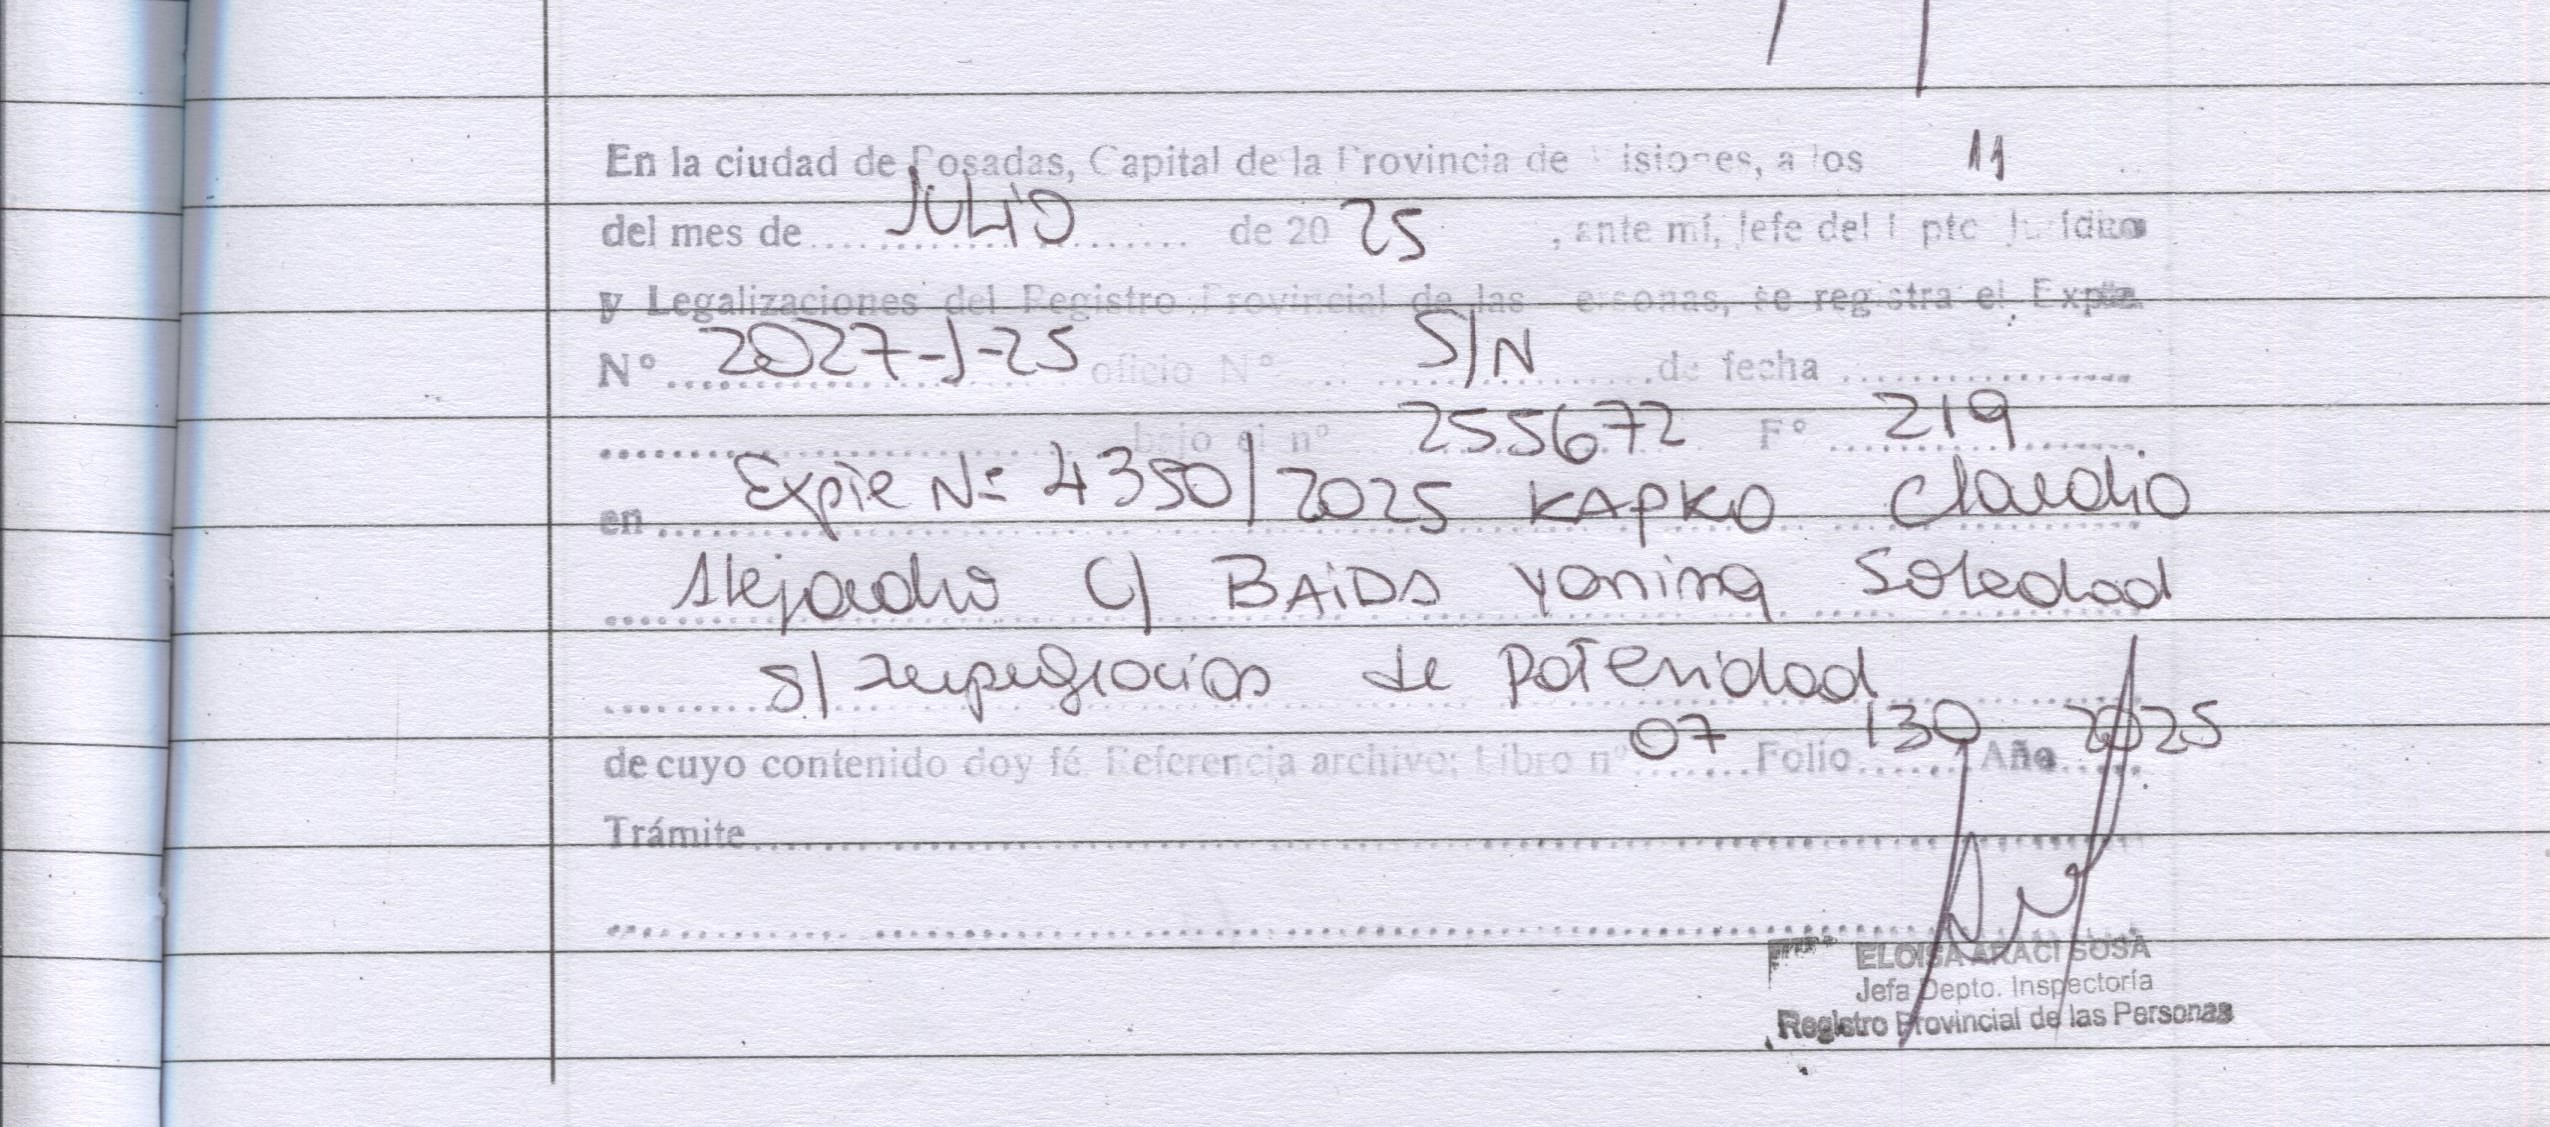 En la ciudad de Posadas, Capital de la Provincia de Misiones, a los 11
del mes de JULIO de 20 25 , ante mí, Jefe del Dpto Jurídico
y Legalizaciones del Registro Provincial de las Personas, se registra el Expte.
N° 2027-J-25 oficio N° S/N de fecha
bajo el n° 255672 F° 219
en Expte Nº 4350/2025 KAPKO Claudio
Alejandro C/ BAIDA Yanina Soledad
S/ impugnación de Paternidad
de cuyo contenido doy fé Referencia archivo: Libro n° 07 Folio 130 Año 2025
Trámite
ELOISA ARACI SOSA
Jefa Depto. Inspectoría
Registro Provincial de las Personas